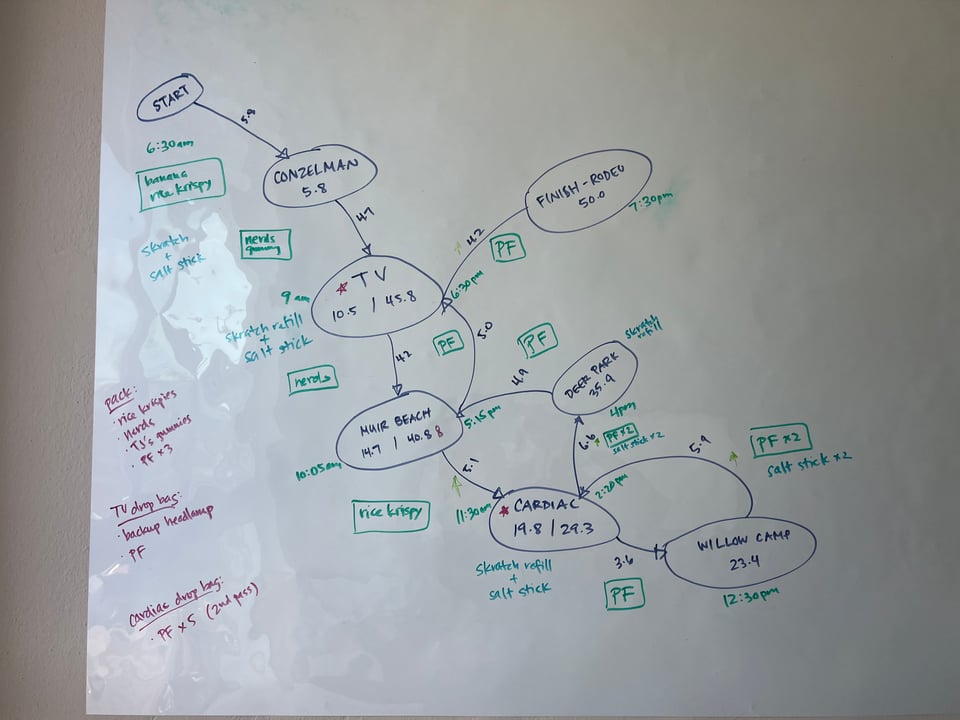 START
5.8
6:30am
banana
rice krispy
CONZELMAN
5.8
4.7
skratch
+
salt stick
nerds
gummy
TV
10.5 / 45.8
9 am
skratch refill
+
salt stick
FINISH-RODEO
50.0
7:30pm
4.2
PF
6:30pm
5.0
PF
4.2
nerds
MUIR BEACH
14.7 / 40.8 8
10:05am
5:15pm
4.9
PF
DEER PARK
35.9
skratch
refill
4pm
6.6
PF x2
salt stick x2
5.1
rice krispy
11:30am
CARDIAC
19.8 / 29.3
2:20pm
skratch refill
+
salt stick
3.6
PF
WILLOW CAMP
23.4
12:30pm
5.9
PF x2
salt stick x2
pack:
· rice krispies
· nerds
· TJ's gummies
· PF x3
TV drop bag:
· backup headlamp
· PF
cardiac drop bag:
· PF x5 (2nd pass)